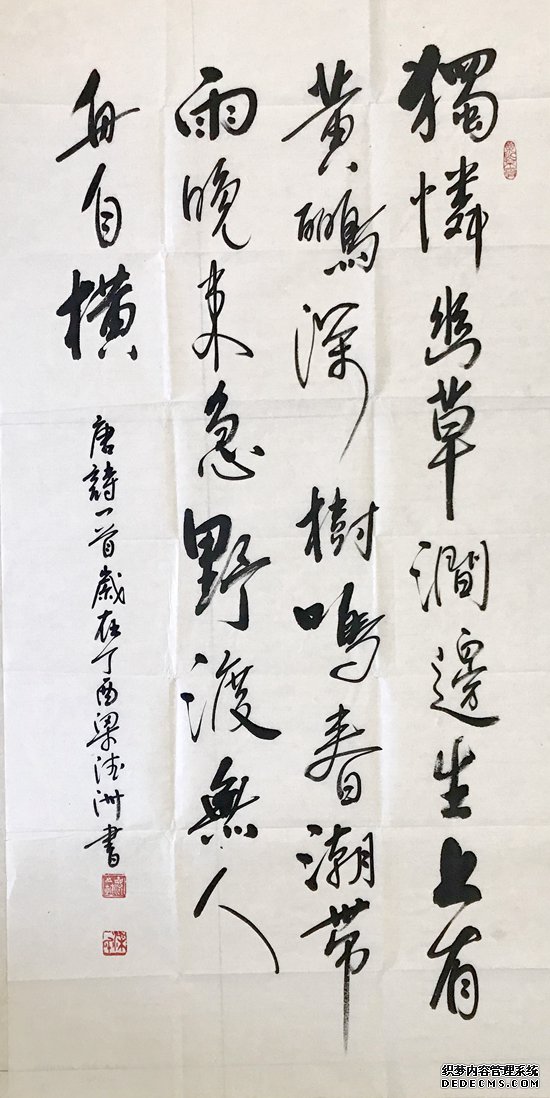 獨憐幽草澗邊生上有
黃鸝深樹鳴春潮帶
雨晚來急野渡無人
舟自橫
唐詩一首歲在丁酉梁德洲書
织梦内容管理系统
DEDECMS.COM